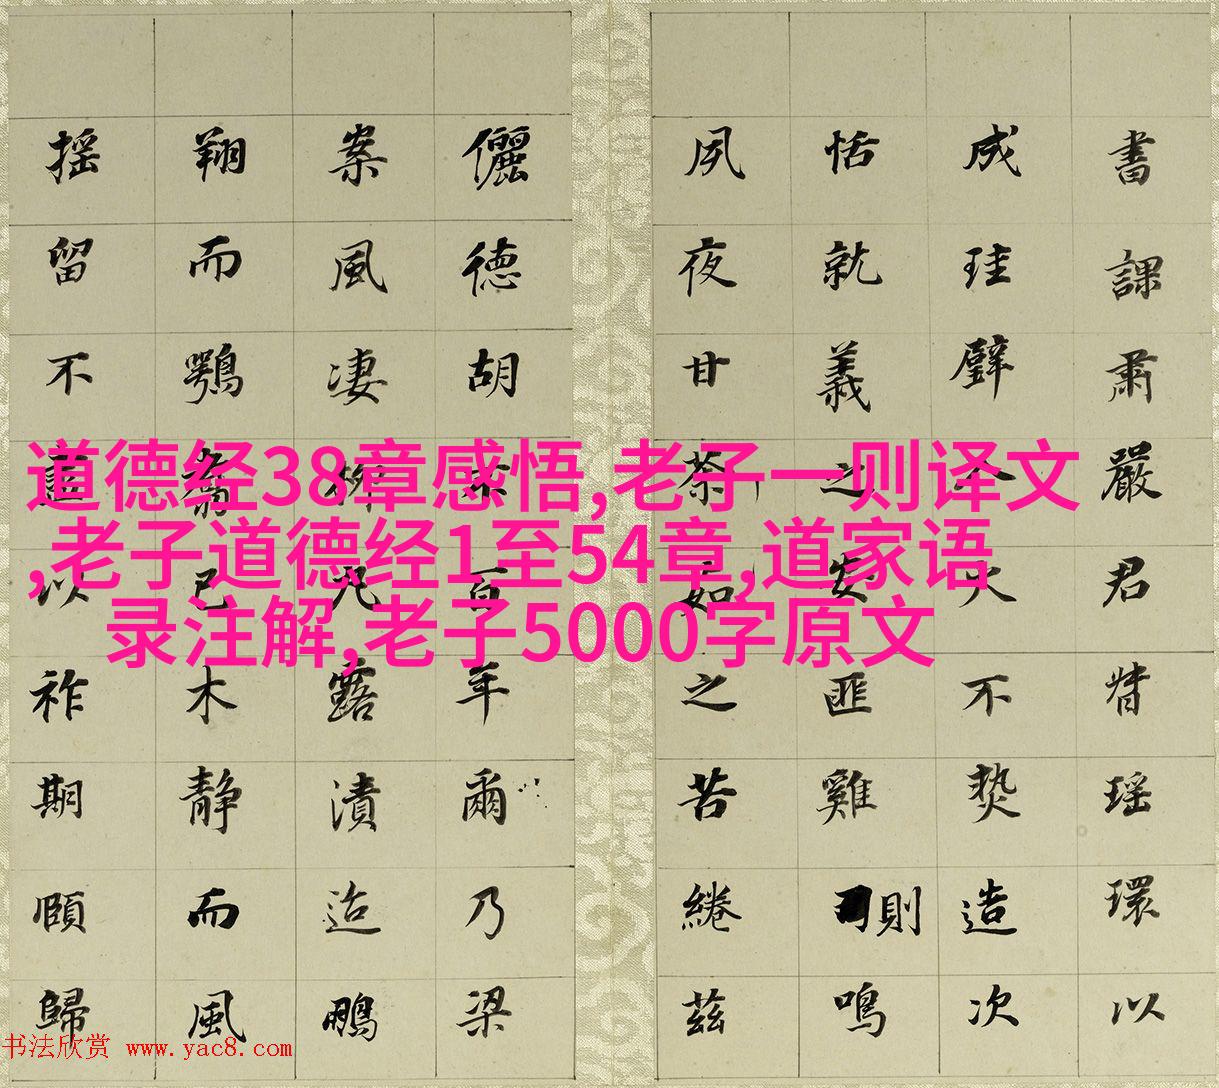 書課肅嚴君瑶環以
成珪璧火不熱造次
恬就義之匪雞則鳴
夙夜甘荼如之苦綣茲
儷德胡百年爾乃梁
案風淒柳露漬迨鵬
翔而鶚翥已木靜而風
摇留不以祚期頤歸
道德经38章感悟,老子一则译文
,老子道德经1至54章,道家语
录注解,老子5000字原文
书法欣赏 www.yac8.com